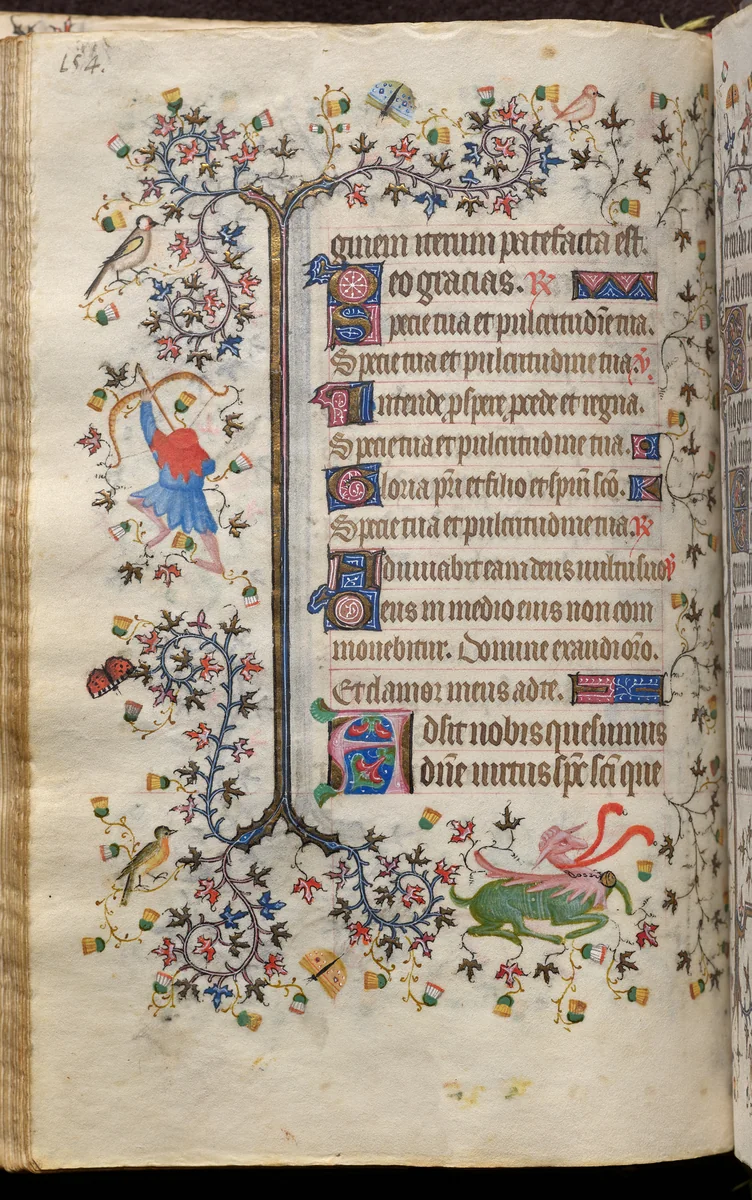 154.
ginem iterum patefacta est.
Deo gracias. R
Specie tua et pulcritudīe tua.
Specie tua et pulcritudine tua. v
Intende, ꝓspere, ꝓcede et regna.
Specie tua et pulcritudine tua.
Gloria pr̄i et filio et spiritui sc̄o.
Specie tua et pulcritudine tua. R
Adiuuabit eam deus uultu suo v
Deus in medio eius non com
mouebitur. Domine exaudi or̄o.
Et clamor meus ad te.
Adsit nobis quesumus
dn̄e uirtus sp̄c sc̄i que